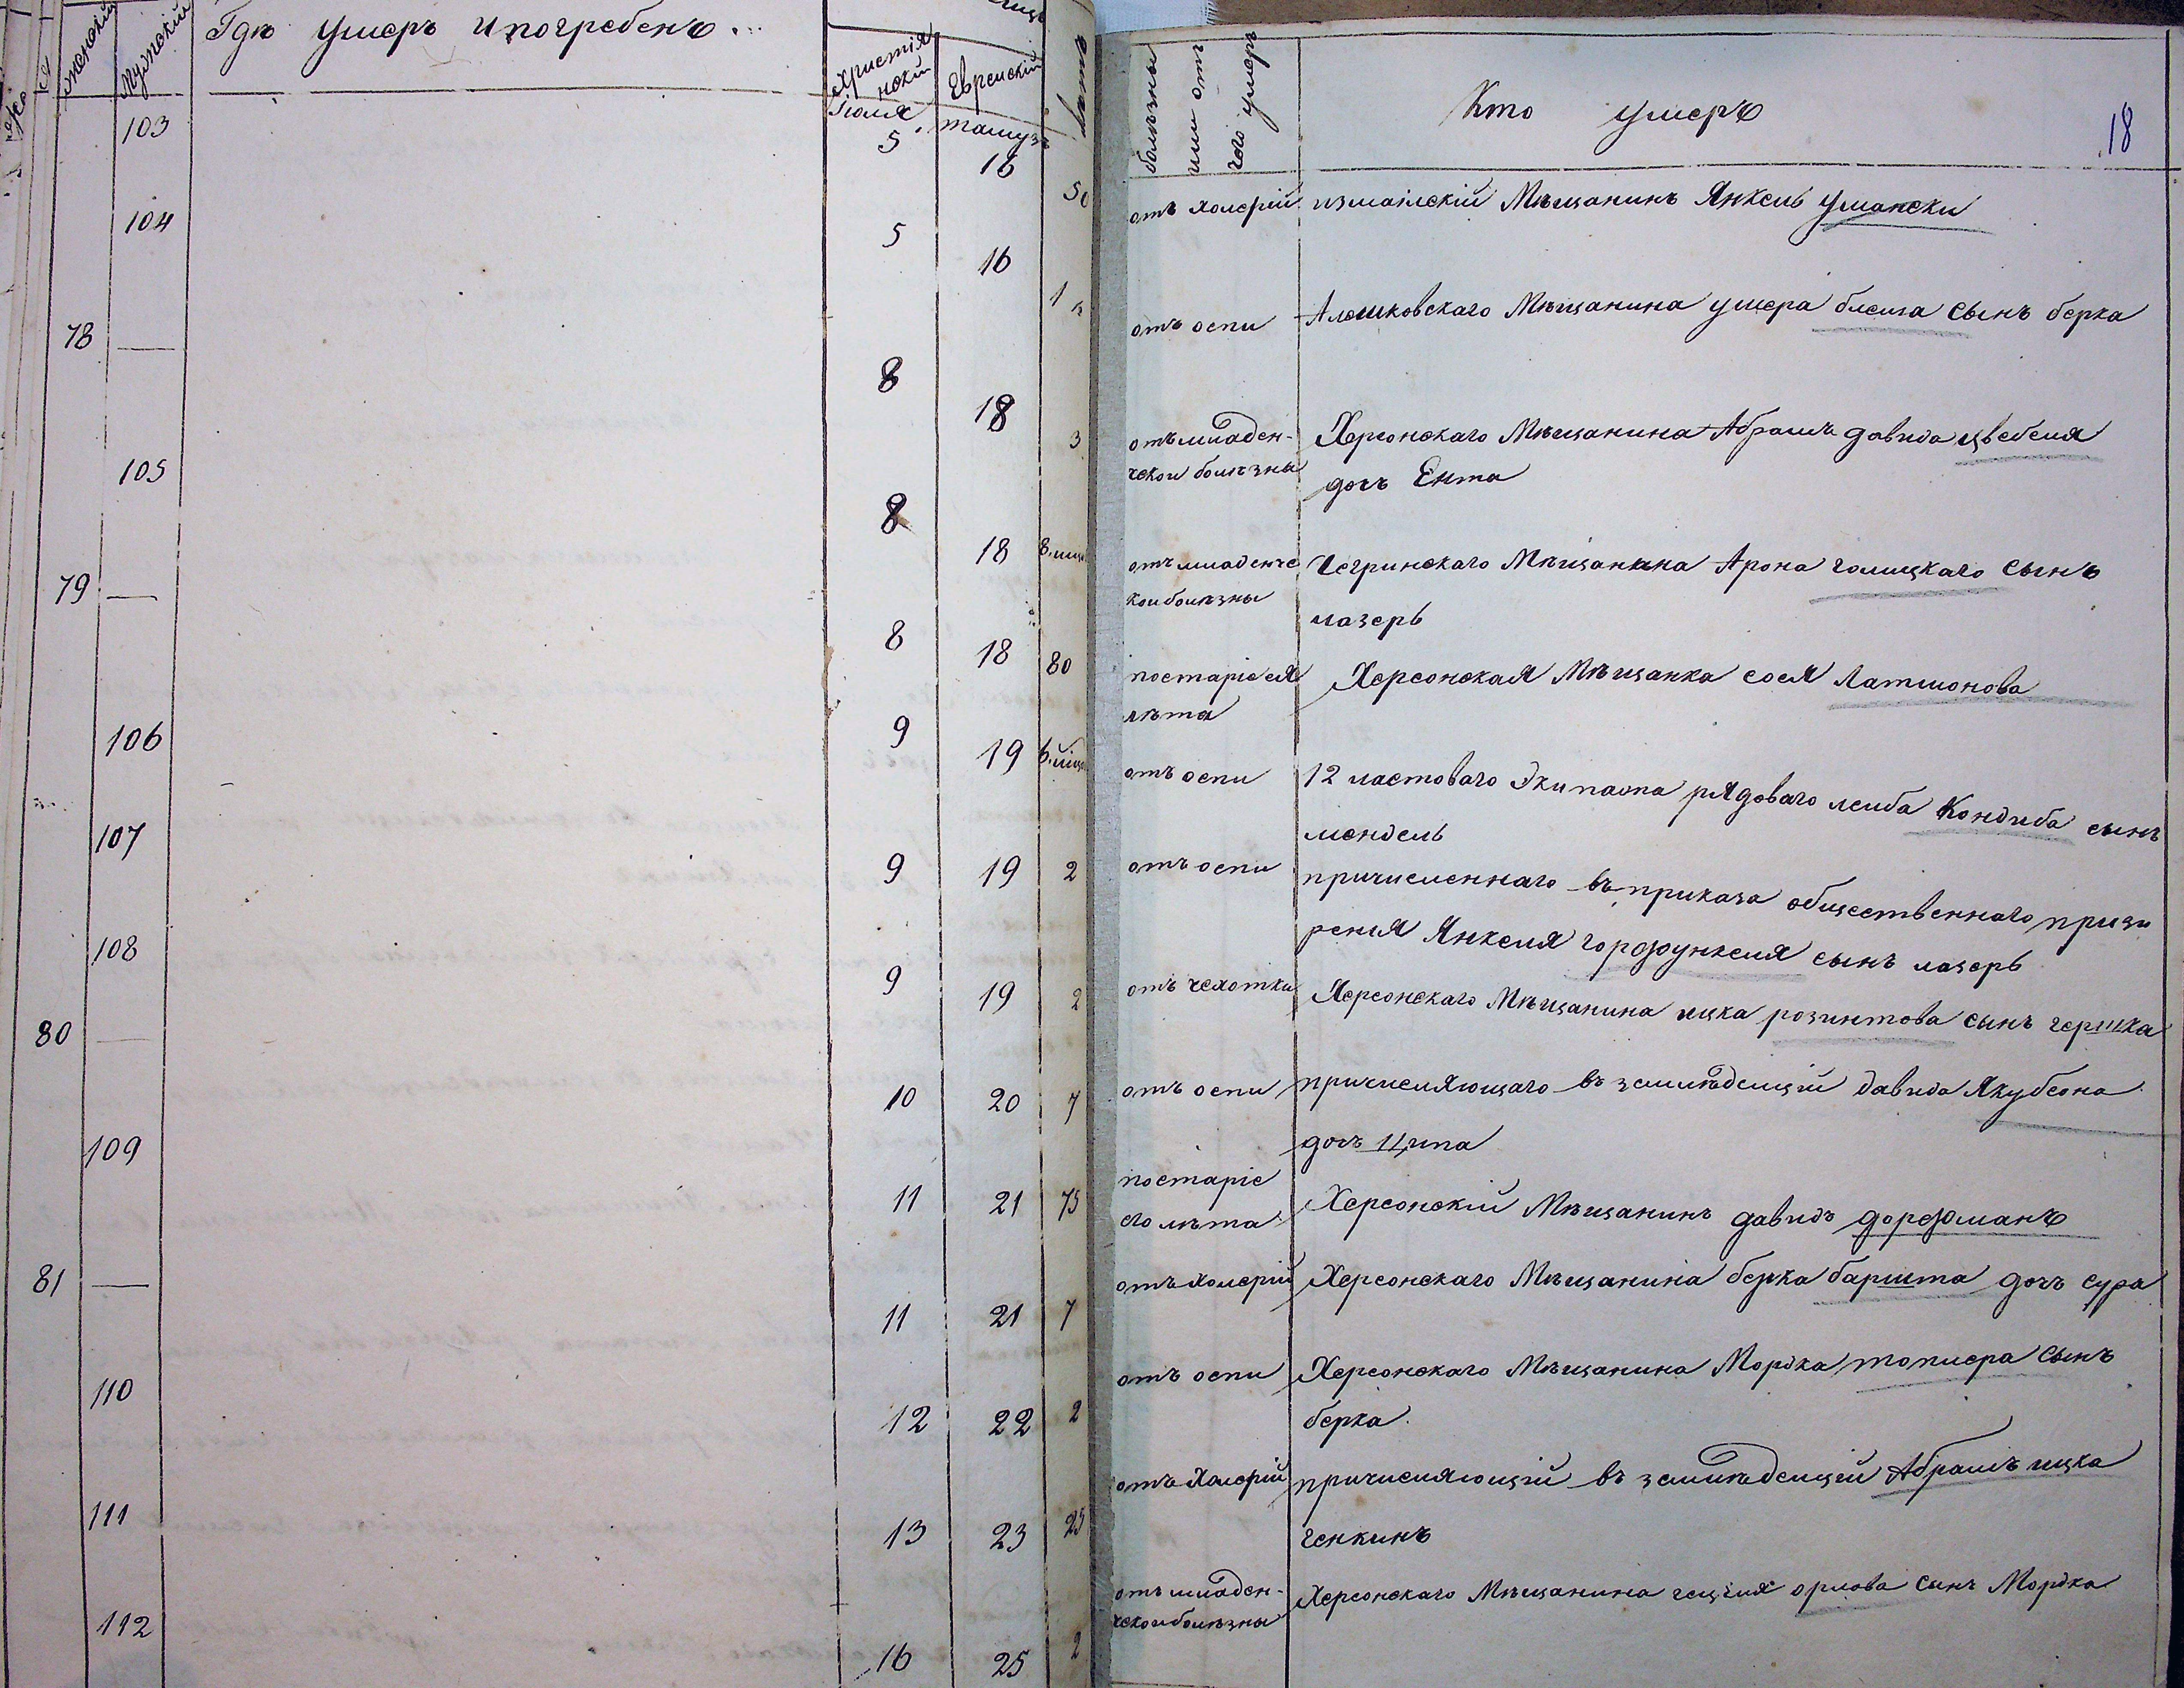 женскій
Мужескій
Гдѣ умеръ и погребенъ
Христіянскій
Еврейскій
Іюля
тамузъ
103
5
16
50
104
5
16
1
78
—
8
18
3
105
8
18
8 мѣс
79
—
8
18
80
106
9
19
107
9
19
2
108
9
19
2
80
—
10
20
7
109
11
21
75
81
—
11
21
7
110
12
22
2
111
13
23
25
112
16
25
2
болѣзны
или отъ
чего умеръ
Кто умеръ
18
отъ холерій измаілскій Мѣщанинъ Янкель умански
отъ оспи Алешковскаго Мѣщанина умера блеша сынъ берка
отъ младен- Херсонскаго Мѣщанина Абрамъ давида цвебеля
ческои болѣзны дочъ Ента
отъ младенче Чегринскаго Мѣщанина Арона галицкаго сынъ
кои болѣзны лазеръ
постаріе ея Херсонская Мѣщанка сося Латмонова
лѣта
отъ оспи 12 ластоваго Экипажа рядоваго лейба Кондиба сынъ
мендель
отъ оспи причисленнаго въ приказа общественнаго призи
ренія Янкеля горфункеля сынъ лазеръ
отъ чехотки Херсонскаго Мѣщанина ицка розинтова сынъ гершка
отъ оспи причисляющаго въ земледелцій давида Якубсона
дочъ Ципа
постаріе
его лѣта Херсонскій Мѣщанинъ давидъ дорфманъ
отъ холерій Херсонскаго Мѣщанина берка баршта дочъ сура
отъ оспи Херсонскаго Мѣщанина Мордка топмера сынъ
берка
отъ холерій причисляющій въ земледелцій Абрамъ ицка
генкинъ
отъ младен- Херсонскаго Мѣщанина гецеля орлова сынъ Мордка
ческои болѣзны